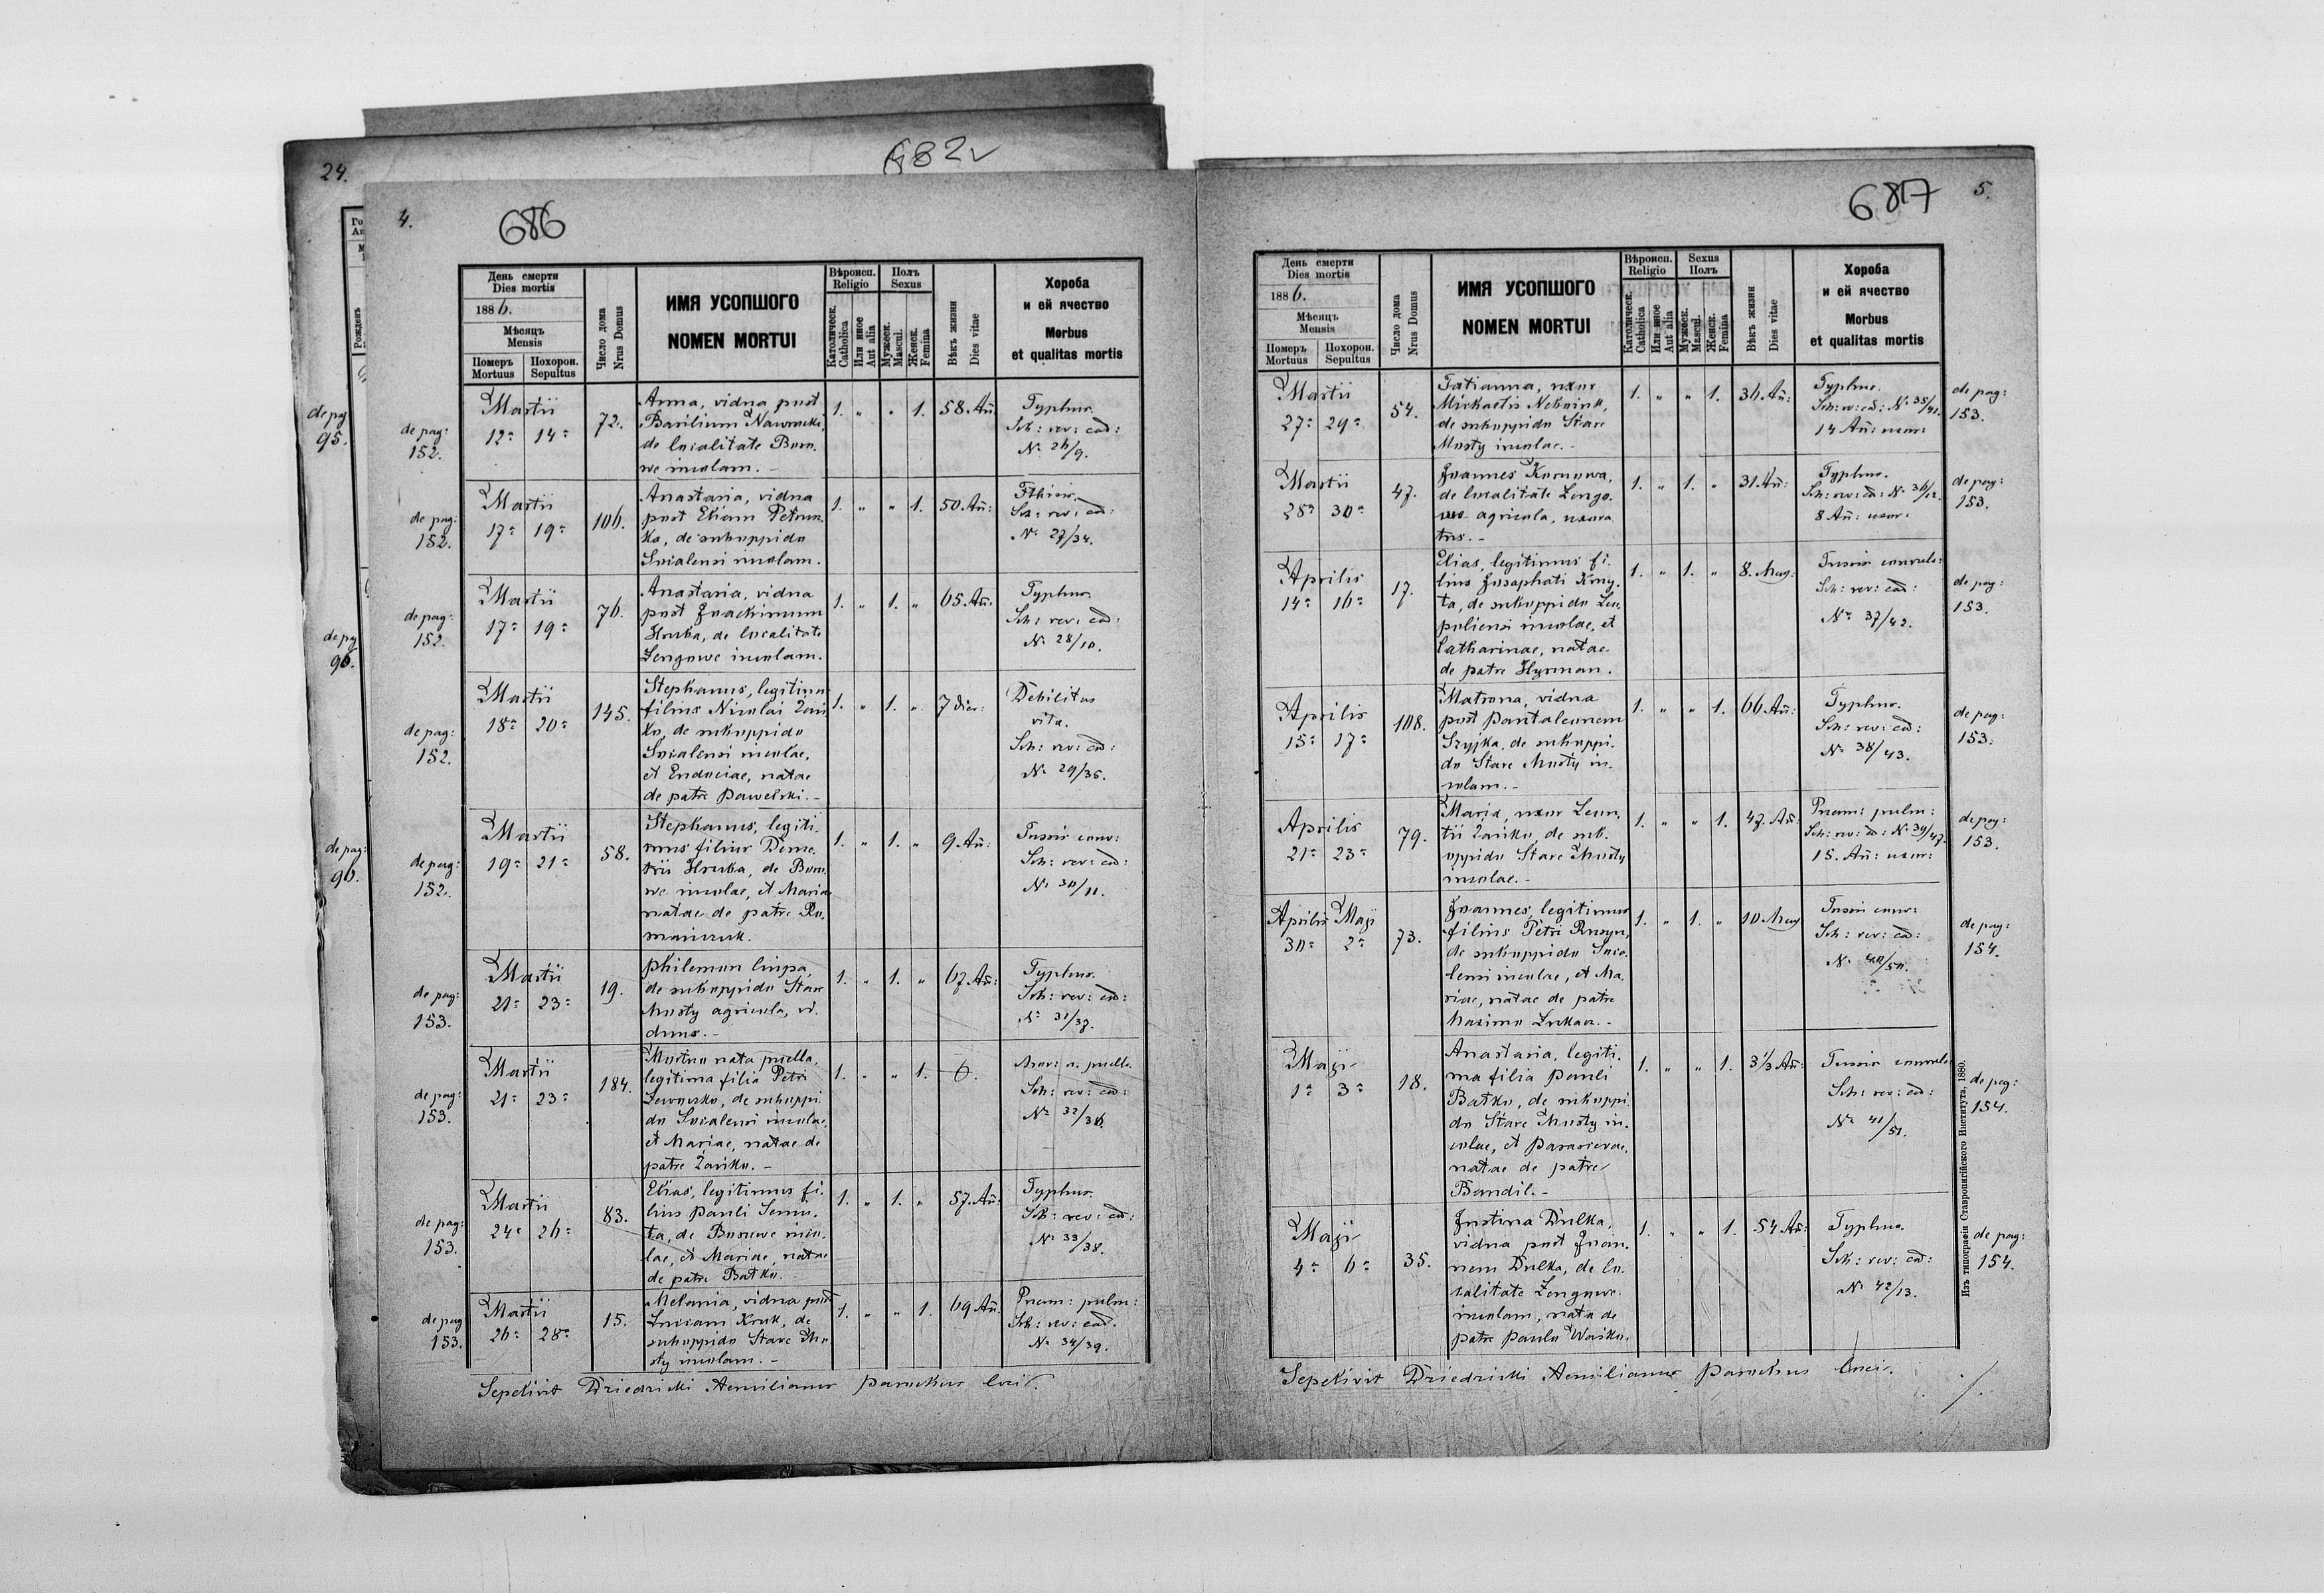 24.
682
de pag
95.
de pag
96.
de pag:
96.
4.
686
День смерти
Dies mortis
1886.
Мѣсяцъ
Mensis
Померъ
Mortuus
Похорон.
Sepultus
Число дома
Nrus Domus
ИМЯ УСОПШОГО
NOMEN MORTUI
Вѣроисп.
Religio
Католическ.
Catholica
Или иное
Aut alia
Полъ
Sexus
Мужеск.
Mascul.
Женск.
Femina
Вѣкъ жизни
Dies vitae
Хороба
и ей ячество
Morbus
et qualitas mortis
de pag:
152.
Martii
12 14
72.
Anna, vidua post
Basilium Nawrocki,
de localitate Boro-
we incolam. -
1. " " 1.
58. Añ.
Typhus.
Sch: rev: cad:
N. 26/9.
de pag:
152.
Martii
17 19
106.
Anastasia, vidua
post Eliam Petrun-
ko, de suboppido
Socalensi incolam.
1. " " 1.
50. Añ:
Pthisis.
Sch: rev: cad:
N. 27/34.
de pag:
152.
Martii
17 19
76.
Anastasia, vidua
post Joachimum
Hruba, de localitate
Zengowe incolam.
1. " 1. "
65. Añ.
Typhus.
Sch: rev: cad:
N. 28/10.
de pag:
152.
Martii
18 20
145.
Stephanus, legitimus
filius Nicolai Zaii
ko, de suboppido
Socalensi incolae,
et Eudociae, natae
de patre Pawelski. -
1. " 1. "
7 dier:
Debilitas
vita.
Sch: rev: cad:
N. 29/35.
de pag:
152.
Martii
19 21
58.
Stephanus, legiti-
mus filius Deme-
trii Hruba, de Boro
we incolae, et Mariae
natae de patre Ro-
maniuk.
1. " 1. "
9. Añ:
Tussis conv:
Sch: rev: cad:
N. 30/11.
de pag:
153.
Martii
21 23
19.
Philemon Cinpa,
de suboppido Stare
Mosty agricola, vi-
duus. -
1. " 1. "
67. Añ:
Typhus.
Sch: rev: cad:
N. 31/37.
de pag:
153.
Martii
21 23
184.
Mortuo nata puella,
legitima filia Petri
de suboppi
do Socalensi incolae,
et Mariae, natae de
patre Zaiiko. -
1. " " 1.
0.
Mor: n. puella.
Sch: rev: cad:
N. 32/36.
de pag:
153.
Martii
24 26
83.
Elias, legitimus fi-
lius Pauli Semu-
ta, de Borowe inco-
lae, et Mariae, natae
de patre Batko.
1. " 1. "
57. Añ:
Typhus.
Sch: rev: cad:
N. 33/38.
de pag
153.
Martii
26 28
15.
Melania, vidua post
Lucam Kruk, de
suboppido Stare Mo
sty incolam. -
1. " " 1.
69 Añ.
Pneum: pulm:
Sch: rev: cad.
N. 34/39.
Sepelivit Dziedzicki Aemilianus Parochus loci.
5.
687
День смерти
Dies mortis
1886.
Мѣсяцъ
Mensis
Померъ
Mortuus
Похорон.
Sepultus
Число дома
Nrus Domus
ИМЯ УСОПШОГО
NOMEN MORTUI
Вѣроисп.
Religio
Католическ.
Catholica
Или иное
Aut alia
Sexus
Полъ
Мужеск.
Mascul.
Женск.
Femina
Вѣкъ жизни
Dies vitae
Хороба
и ей ячество
Morbus
et qualitas mortis
Martii
27 29
54.
Tatianna, uxor
Michaelis
de suboppido Stare
Mosty incolae. -
1. " " 1.
36. Añ:
Typhus.
Sch: rv: cd: N. 35/41.
14 Añ: uxor:
de pag:
153.
Martii
28 30
47.
Joannes
de localitate Zengo-
we agricola, uxora
tus. -
1. " 1. "
31 Añ:
Typhus.
Sch: rev: cd: N. 36/12.
8 Añ: uxor:
de pag:
153.
Aprilis
14 16
17.
Elias, legitimus fi-
lius Josaphati
ta, de suboppido Leo-
poliensi incolae, et
Catharinae, natae
de patre Hyrman.
1. " 1. "
8. Mens:
Tussis convuls:
Sch: rev: cad:
N. 37/42.
de pag:
153.
Aprilis
15 17
108.
Matrona, vidua
post Pantaleonem
Szyjka, de suboppi-
do Stare Mosty in-
colam. -
1. " " 1.
66 Añ:
Typhus.
Sch: rev: cd:
N. 38/43.
de pag:
153.
Aprilis
21 23
79.
Maria, uxor Leon-
tii Zaiiko, de sub-
oppido Stare Mosty
incolae. -
1. " " 1.
47. Añ:
Pneum: pulm:
Sch: rev: cd: N. 39/47.
15. Añ: uxor:
de pag:
153.
Aprilis Maji
30 2
73.
Joannes, legitimus
filius Petri Rusyn,
de suboppido Soca-
lensi incolae, et Ma-
riae, natae de patre
Maximo Lukacz. -
1. " 1. "
10. Mens
Tussis conv:
Sch: rev: cad:
N. 40/50.
de pag:
154.
Maji
1 3
18.
Anastasia, legiti-
ma filia Pauli
Batko, de suboppi
do Stare Mosty in-
colae, et Parascevae,
natae de patre
Bandil. -
1. " " 1.
3 1/3 Añ:
Tussis convuls:
Sch: rev: cad:
N. 41/51.
de pag:
154.
Maji
4 6
35.
Justina Dulka,
vidua post Joan-
nem Dulka, de lo-
calitate Zengowe
incolam, nata de
patre Paulo Wasko.
1. " " 1.
54 Añ:
Typhus.
Sch: rev: cad:
N. 42/13.
de pag:
154.
Изъ типографіи Ставропигійского Института, 1880.
Sepelivit Dziedzicki Aemilianus Parochus loci.